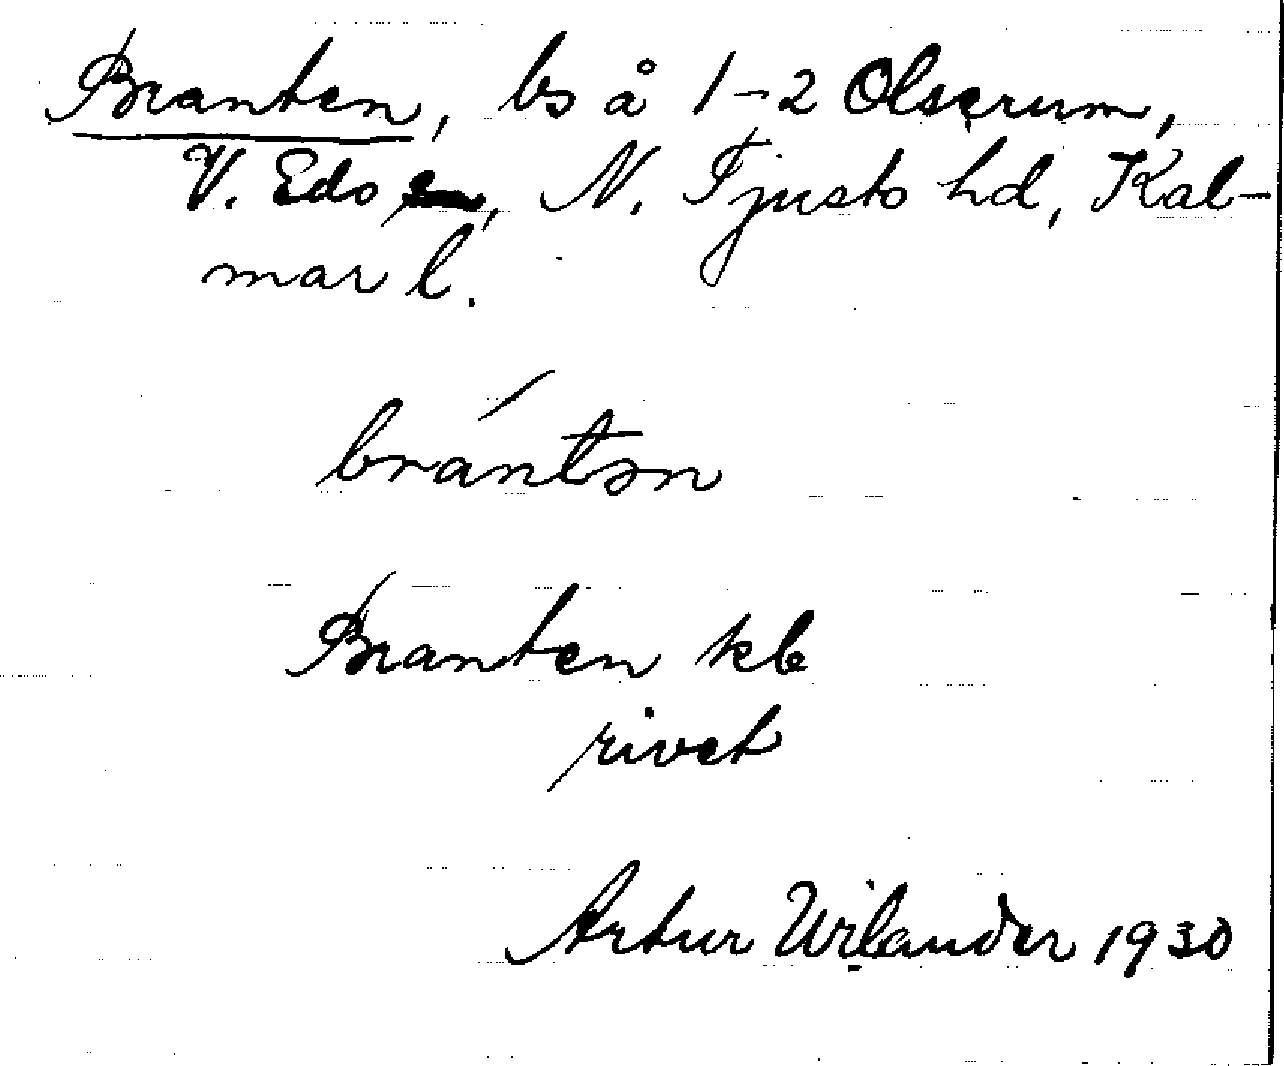 Branten, bs å 1-2 Olserum,
V. Eds sn, N. Tjusts hd, Kal-
mar l.
brántən
Branten kb
rivet
Artur Wilander 1930